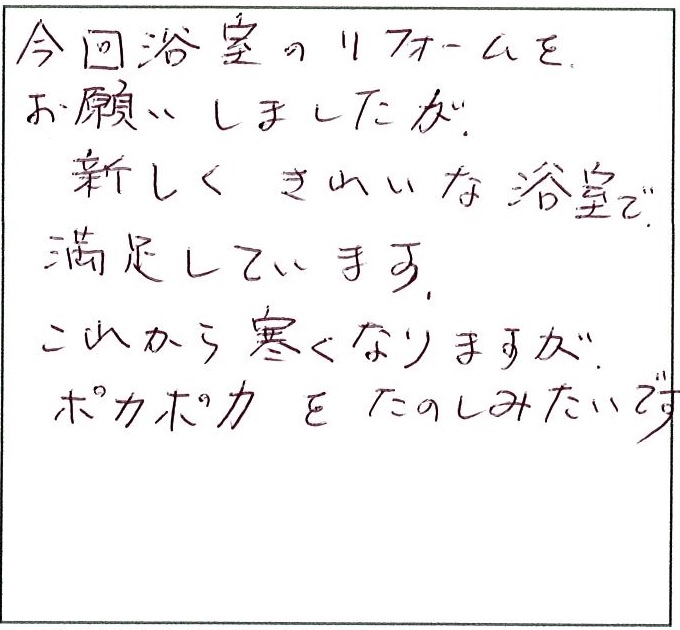 今回浴室のリフォームを
お願いしましたが、
新しくきれいな浴室で、
満足しています。
これから寒くなりますが、
ポカポカをたのしみたいです